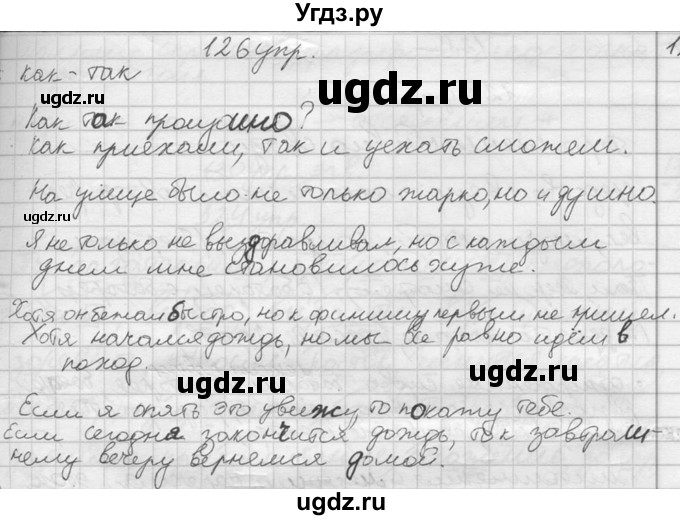 Угдз.ру
126 упр.
1
как - так
Как так произошло?
Как приехали, так и уехать сможем.
На улице было не только жарко, но и душно.
Я не только не выздоравливал, но с каждым
днем мне становилось хуже.
Хотя он бежал быстро, но к финишу первым не пришел.
Хотя начался дождь, но мы все равно идём в
поход.
Если я опять это увижу то покажу тебе.
Если сегодня закончится дождь, то к завтраш-
нему вечеру вернемся домой.
ugdz.ru
ugdz.ru
ugdz.ru
ugdz.ru
ugdz.ru
ugdz.ru
ugdz.ru
ugdz.ru
ugdz.ru